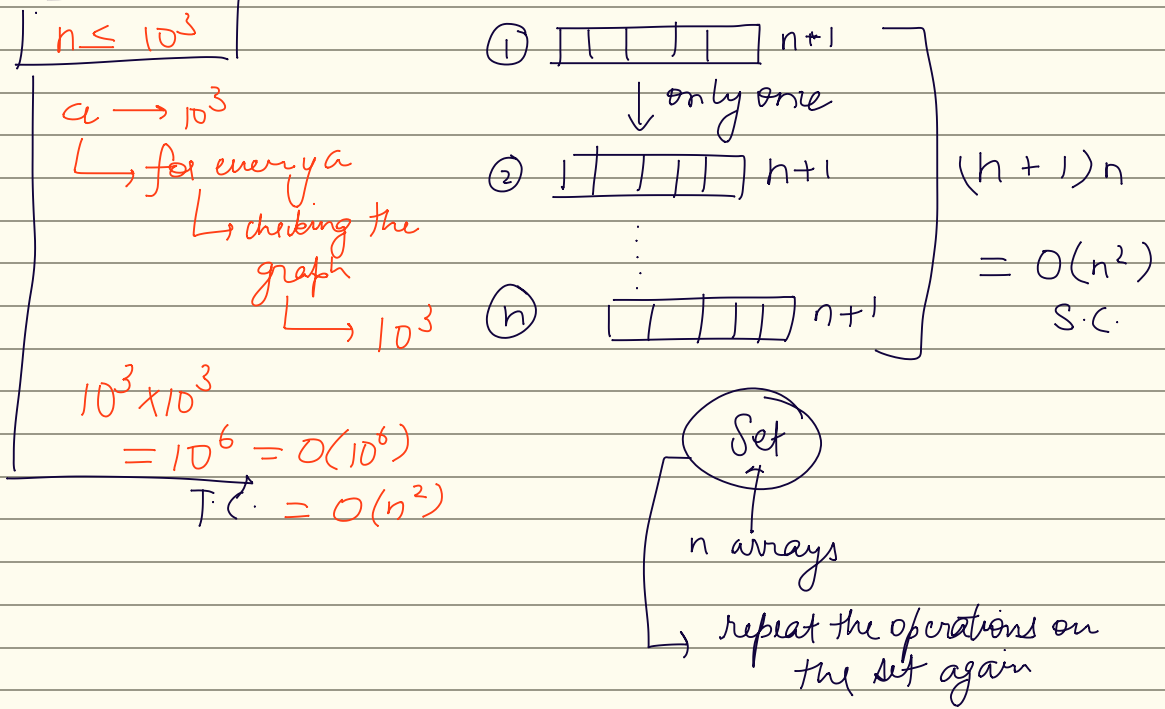 n ≤ 10³
a → 10³
for every a
checking the
graph
10³
10³ × 10³
= 10⁶ = O(10⁶)
T.C. = O(n²)
① n+1
only once
② n+1
ⓝ n+1
(n + 1)n
= O(n²)
S.C.
Set
n arrays
repeat the operations on
the set again